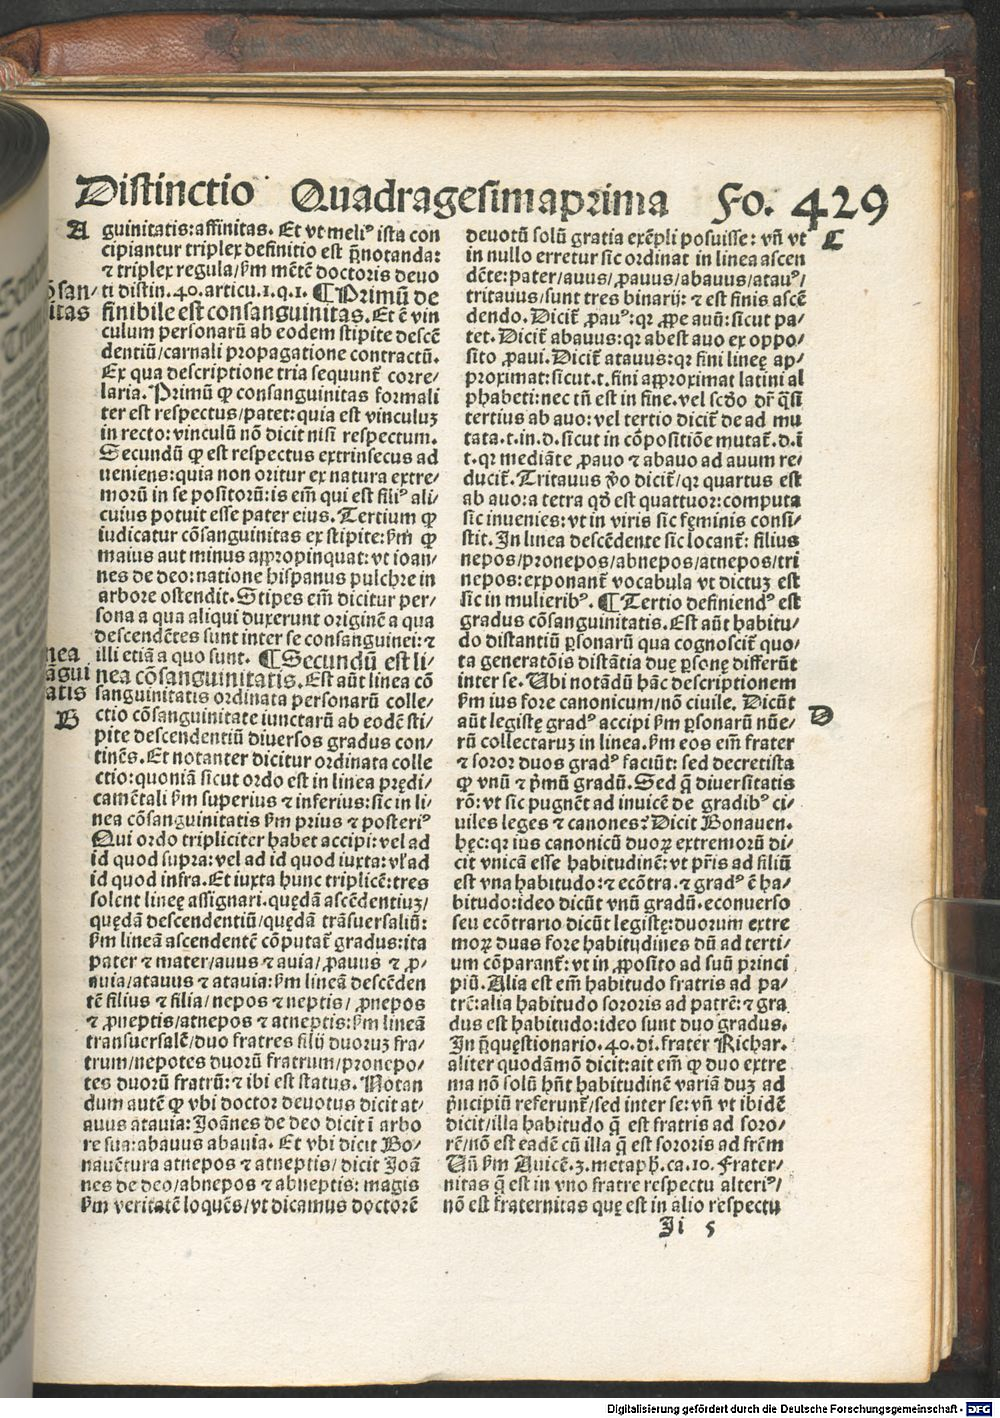 Distinctio Quadragesimaprima Fo. 429
A
guinitatis:affinitas. Et vt meliꝰ ista con
cipiantur triplex definitio est p̄notanda:
⁊ triplex regula/ẜm mētē doctoris deuo
ti distin.40.articu.1.q.1. ¶ Primū de
ōsan/
itas
finibile est consanguinitas. Et ē vin
culum personarū ab eodem stipite descē
dentiū/carnali propagatione contractū.
Ex qua descriptione tria sequunt̄ corre/
laria. Primū ꝙ consanguinitas formali
ter est respectus/patet: quia est vinculuꝫ
in recto: vinculū nō dicit nisi respectum.
Secundū ꝙ est respectus extrinsecus ad
ueniens: quia non oritur ex natura extre/
morū in se positorū: is em̄ qui est filiꝰ ali/
cuius potuit esse pater eius. Tertium ꝙ
iudicatur cōsanguinitas ex stipite: ẜm ꝙ
maius aut minus appropinquat: vt ioan/
nes de deo: natione hispanus pulchre in
arbore ostendit. Stipes em̄ dicitur per/
sona a qua aliqui duxerunt originē a qua
descendētes sunt inter se consanguinei: ⁊
illi etiā a quo sunt. ¶ Secundū est li/
nea
āgui
atis
nea cōsanguinitatis. Est aūt linea cō
sanguinitatis ordinata personarū colle/
B
ctio cōsanguinitate iunctarū ab eodē sti/
pite descendentiū diuersos gradus con/
tinēs. Et notanter dicitur ordinata colle
ctio: quoniā sicut ordo est in linea prędi/
camētali ẜm superius ⁊ inferius: sic in li/
nea cōsanguinitatis ẜm prius ⁊ posteriꝰ
Qui ordo tripliciter habet accipi: vel ad
id quod supra: vel ad id quod iuxta: vl̄ ad
id quod infra. Et iuxta hunc triplicē: tres
solent lineę assignari. quędā ascēdentiuꝫ/
quędā descendentiū/quędā trāsuersaliū:
ẜm lineā ascendentē cōputat̄ gradus: ita
pater ⁊ mater/auus ⁊ auia/ꝓauus ⁊ ꝓ/
auia/atauus ⁊ atauia: ẜm lineā descēden
tē filius ⁊ filia/nepos ⁊ neptis/ꝓnepos
⁊ ꝓneptis/atnepos ⁊ atneptis: ẜm lineā
transuersalē/duo fratres filij duoruꝫ fra/
trum/nepotes duorū fratrum/pronepo/
tes duorū fratrū: ⁊ ibi est status. Notan
dum autē ꝙ vbi doctor deuotus dicit at/
auus atauia: Joānes de deo dicit ī arbo
re sua: abauus abauia. Et vbi dicit Bo/
nauētura atnepos ⁊ atneptis/dicit Joā
nes de deo/abnepos ⁊ abneptis: magis
ẜm veritatē loquēs/vt dicamus doctorē
deuotū solū gratia exēpli posuisse: vn̄ vt
C
in nullo erretur sic ordinat in linea ascen
dēte: pater/auus/ꝓauus/abauus/atauꝰ/
tritauus/sunt tres binarij: ⁊ est finis ascē
dendo. Dicit̄ ꝓauꝰ: qꝛ ꝓpe auū: sicut pa/
tet. Dicit̄ abauus: qꝛ abest auo ex oppo/
sito ꝓaui. Dicit̄ atauus: qꝛ fini lineę ap/
proximat: sicut.t.fini approximat latini al
phabeti: nec tn̄ est in fine. vel scd̄o dr̄ q̄si
tertius ab auo: vel tertio dicit̄ de ad mu
tata.t.in.d.sicut in cōpositiōe mutat̄.d.ī
t.qꝛ mediāte ꝓauo ⁊ abauo ad auum re/
ducit̄. Tritauus v̄o dicit̄/qꝛ quartus est
ab auo: a tetra qd̄ est quattuor: computa
sic inuenies: vt in viris sic fęminis consi/
stit. In linea descēdente sic locant̄: filius
nepos/pronepos/abnepos/atnepos/tri
nepos: exponant̄ vocabula vt dictuꝫ est
sic in mulieribꝰ. ¶ Tertio definiendꝰ est
gradus cōsanguinitatis. Est aūt habitu/
do distantiū ꝑsonarū qua cognoscit̄ quo/
ta generatōis distātia duę ꝑsonę differūt
inter se. Ubi notādū hāc descriptionem
ẜm ius fore canonicum/nō ciuile. Dicūt
D
aūt legistę gradꝰ accipi ẜm ꝑsonarū nūe/
rū collectaruꝫ in linea. ẜm eos em̄ frater
⁊ soror duos gradꝰ faciūt: sed decretista
ꝙ vnū ⁊ p̄mū gradū. Sed q̄ diuersitatis
rō: vt sic pugnēt ad inuicē de gradibꝰ ci/
uiles leges ⁊ canones? Dicit Bonauen.
hęc: qꝛ ius canonicū duoꝝ extremorū di/
cit vnicā esse habitudinē: vt pr̄is ad filiū
est vna habitudo: ⁊ ecōtra. ⁊ gradꝰ ē ha/
bitudo: ideo dicūt vnū gradū. econuerso
seu ecōtrario dicūt legistę: duorum extre
moꝝ duas fore habitudines dū ad terti/
um cōparant̄: vt in ꝓposito ad suū princi
piū. Alia est em̄ habitudo fratris ad pa/
trē: alia habitudo sororis ad patrē: ⁊ gra
dus est habitudo: ideo sunt duo gradus.
In p̄questionario.40.di. frater Richar.
aliter quodāmō dicit: ait em̄ ꝙ duo extre
ma nō solū hn̄t habitudinē variā duꝫ ad
p̄ncipiū referunt̄/sed inter se: vn̄ vt ibidē
dicit/illa habitudo q̄ est fratris ad soro/
rē/nō est eadē cū illa q̄ est sororis ad fr̄em
Un̄ ẜm Auicē.3.metaph̄.ca.10. Frater/
nitas q̄ est in vno fratre respectu alteriꝰ/
nō est fraternitas quę est in alio respectu
Ii 5
Digitalisierung gefördert durch die Deutsche Forschungsgemeinschaft - DFG